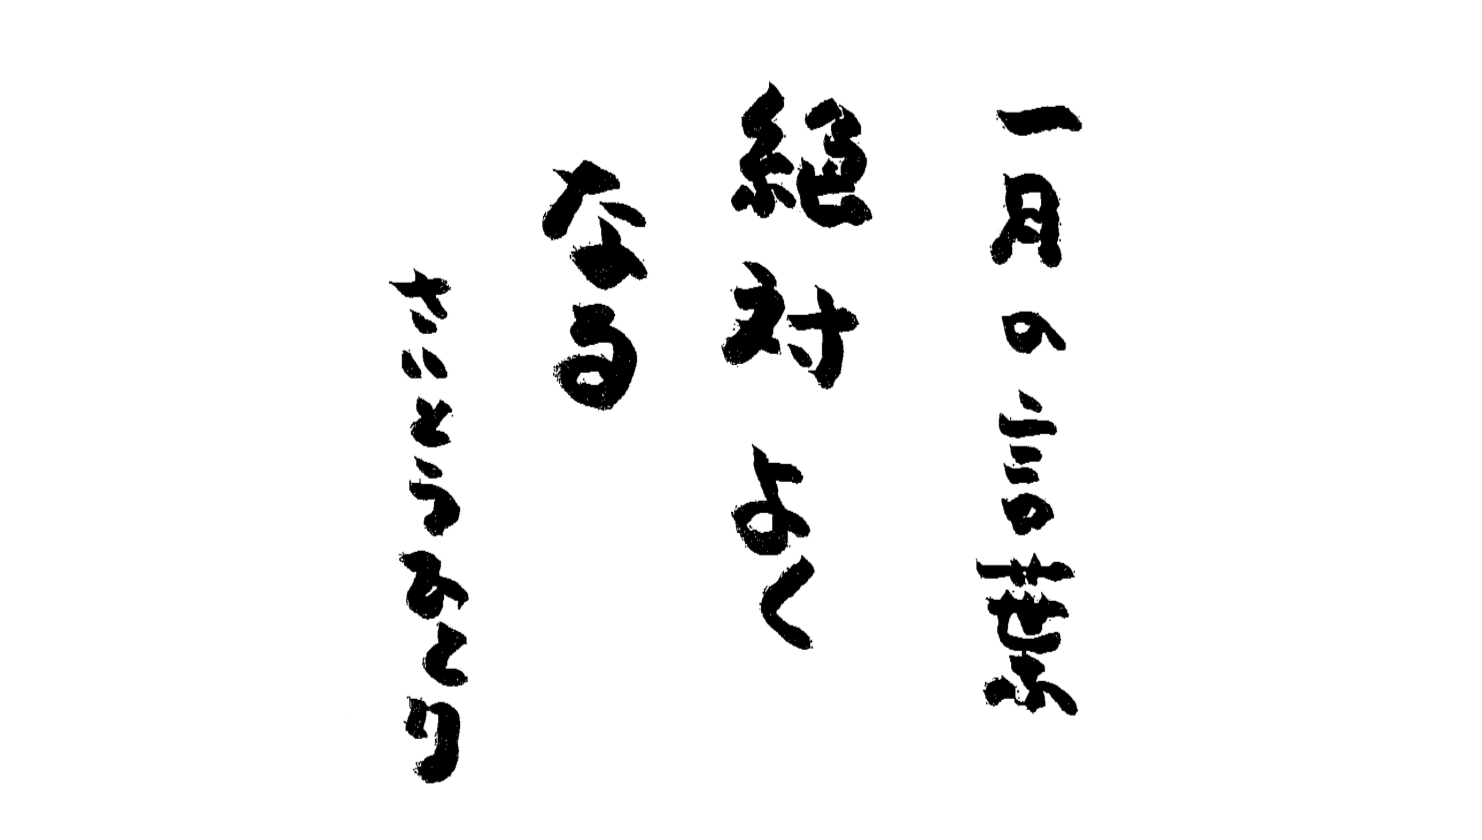 一月の言葉
絶対よく
なる
さいとうひとり